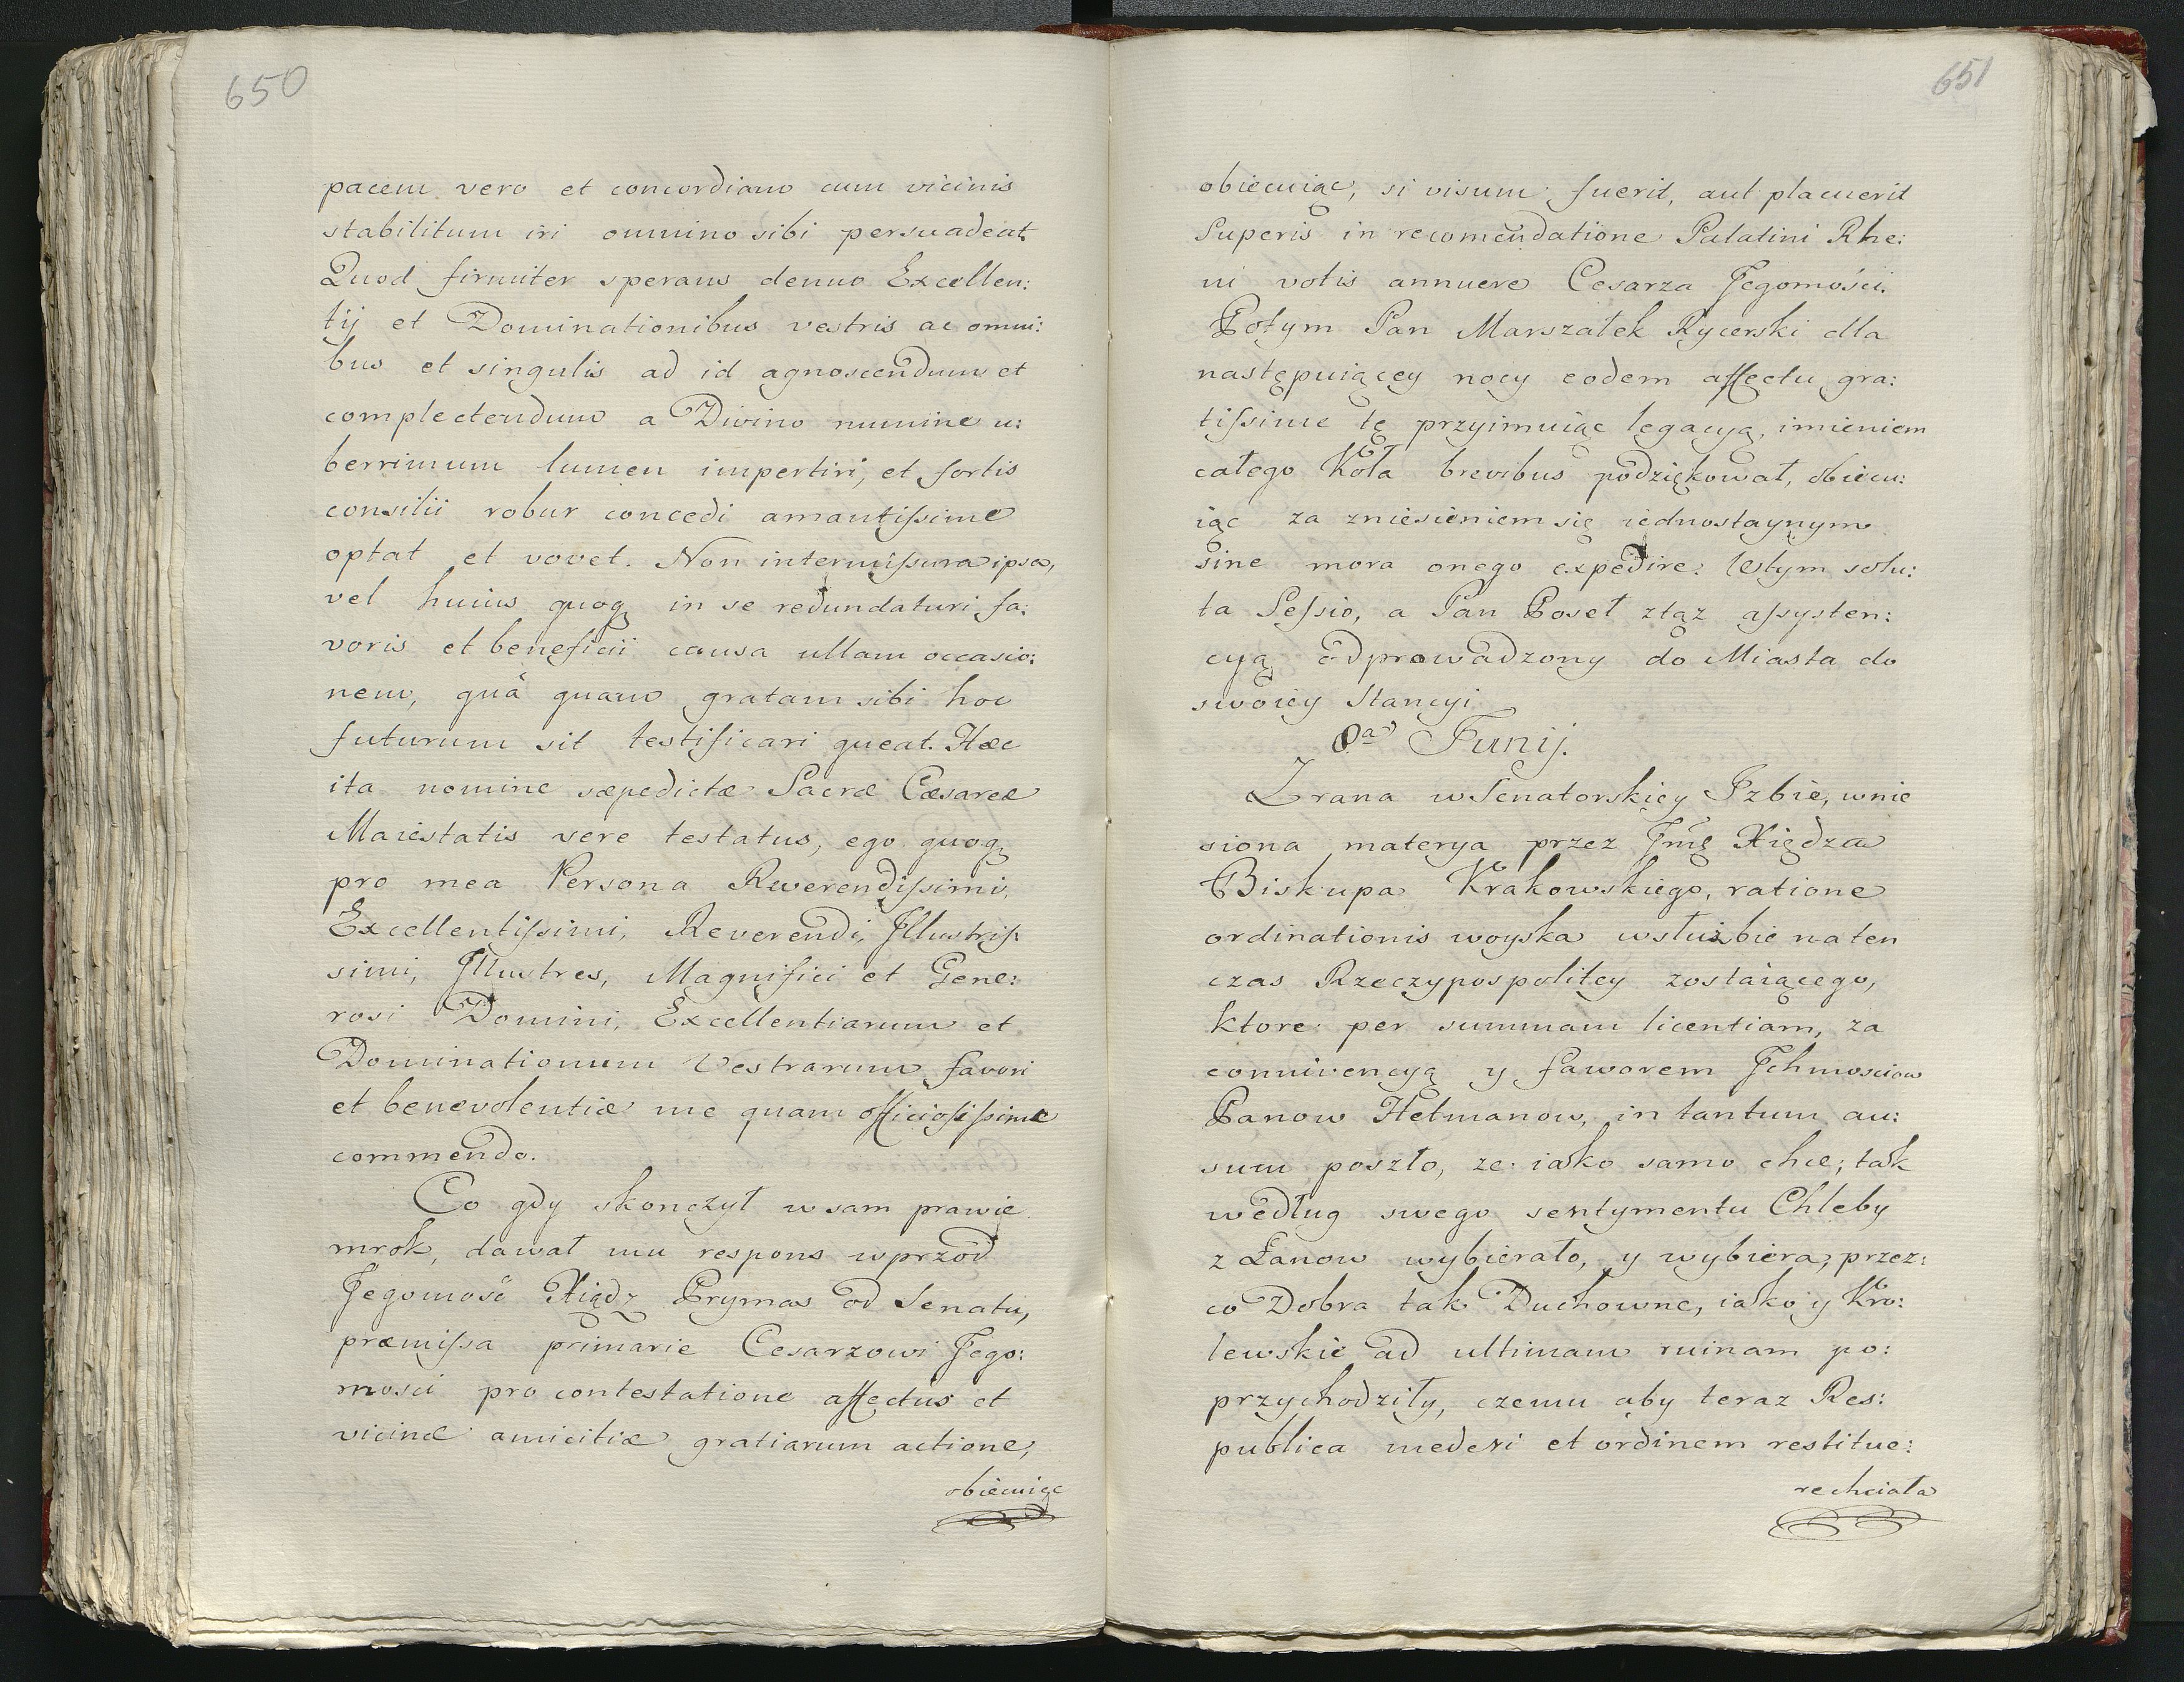 650
pacem vero et concordiam cum vicinis
stabilitum iri omnino sibi persuadeat.
Quod firmiter sperans denuo Excellen:
tij et Dominationibus vestris ac omni:
bus et singulis ad id agnoscendum et
complectendum a Divino numine u:
berrimum lumen impertiri, et fortis
consilii robur concedi amantiſsime
optat et vovet. Non intermiſsura ipsa,
vel huius quoq in se redundaturi fa:
voris et beneficii causa ullam occasio:
nem, quâ quam gratam sibi hoc
futurum sit testificari queat. Hæc
ita nomine sæpedictæ Sacræ Cæsareæ
Maiestatis vere testatus, ego quoq
pro mea Persona Rverendiſsimi,
Excellentiſsimi, Reverendi, Illustriſ:
simi, Illustres, Magnifici et Gene:
rosi Domini, Excellentiarum et
Dominationum Vestrarum favori
et benevolentiæ me quam officiosiſsime
commendo.
Co gdy skonczył w sam prawie
mrok, dawał mu respons wprzod
Jegomość Xiądz Prymas od Senatu,
præmiſsa primarie Cesarzowi Jego:
mosci pro contestatione affectus et
vicinæ amicitiæ gratiarum actione,
obiecuiąc
651
obiecuiąc, si visum fuerit, aut placuerit
Superis in recomendatione Palatini Rhe:
ni votis annuere Cesarza Jegomości.
Potym Pan Marszałek Rycerski dla
następuiącey nocy eodem affectu gra:
tiſsime tę przyimuiąc legacyą, imieniem
całego Koła brevibus podziękował, obiecu:
iąc za zniesieniem się iednostaynym
sine mora onego expedire. Wtym solu:
ta Seſsio, a Pan Poseł ztąz aſsysten:
cyą odprowadzony do Miasta do
swoiey Stancyi
8a Junij.
Zrana w Senatorskiey Izbie, wnie
siona materya przez Jmę Xiędza
Biskupa Krakowskiego, ratione
ordinationis woyska w służbie na ten
czas Rzeczypospolitey zostaiącego,
ktore per summam licentiam, za
connivencyą y faworem Jchmosciow
Panow Hetmanow, in tantum au:
sum poszło, ze iako samo chce; tak
według swego sentymentu Chleby
z Łanow wybierało, y wybiera, przez:
co Dobra tak Duchowne, iako y Kro:
lewskie ad ultimam ruinam po:
przychodziły, czemu aby teraz Res:
publica mederi et ordinem restitue:
re chciała